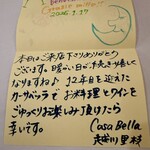 2026.3.27
本日はご来店下さりありがとう
ございます。暖かい日が続き嬉しく
なりますね♪ 12年目を迎えた
カーサベッラでお料理とワインを
ごゆっくりお楽しみ頂けたら
幸いです。
Casa Bella